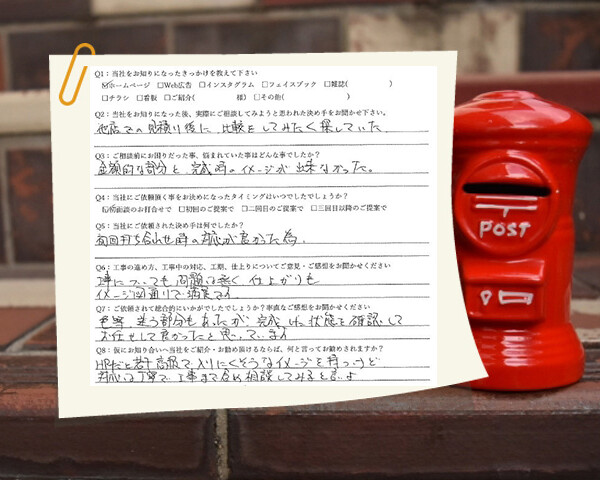 Q1：当社をお知りになったきっかけを教えて下さい
☑ホームページ　□Web広告　□インスタグラム　□フェイスブック　□雑誌(　　　　)
□チラシ　□看板　□ご紹介(　　　　様)　□その他(　　　　)
Q2：当社をお知りになった後、実際にご相談してみようと思われた決め手をお聞かせ下さい。
他店での見積り後に、比較をしてみたく探していた。
Q3：ご相談前にお困りだった事、悩まれていた事はどんな事でしたか？
金額的な部分と完成時のイメージが出来なかった。
Q4：当社にご依頼頂く事をお決めになったタイミングはいつでしたでしょうか？
初回面談のお打合せで　□初回のご提案で　□二回目のご提案で　□三回目以降のご提案で
Q5：当社にご依頼された決め手は何でしたか？
初回打ち合わせ時の対応が良かった為。
Q6：工事の進め方、工事中の対応、工期、仕上りについてご意見・ご感想をお聞かせください
工事についても問題は無く仕上がりも
イメージ図通りで満足です。
Q7：ご依頼されて総合的にいかがでしたでしょうか？率直なご感想をお聞かせください
色等、迷う部分もあったが、完成した状態を確認して
お任せして良かったと思っています
Q8：仮にお知り合いへ当社をご紹介・お勧め頂けるならば、何と言ってお勧めされますか？
HPだと若干高級で入りにくそうなイメージを持つけど
対応は丁寧で、工事まで含め相談してみると良いよ
〒
POST